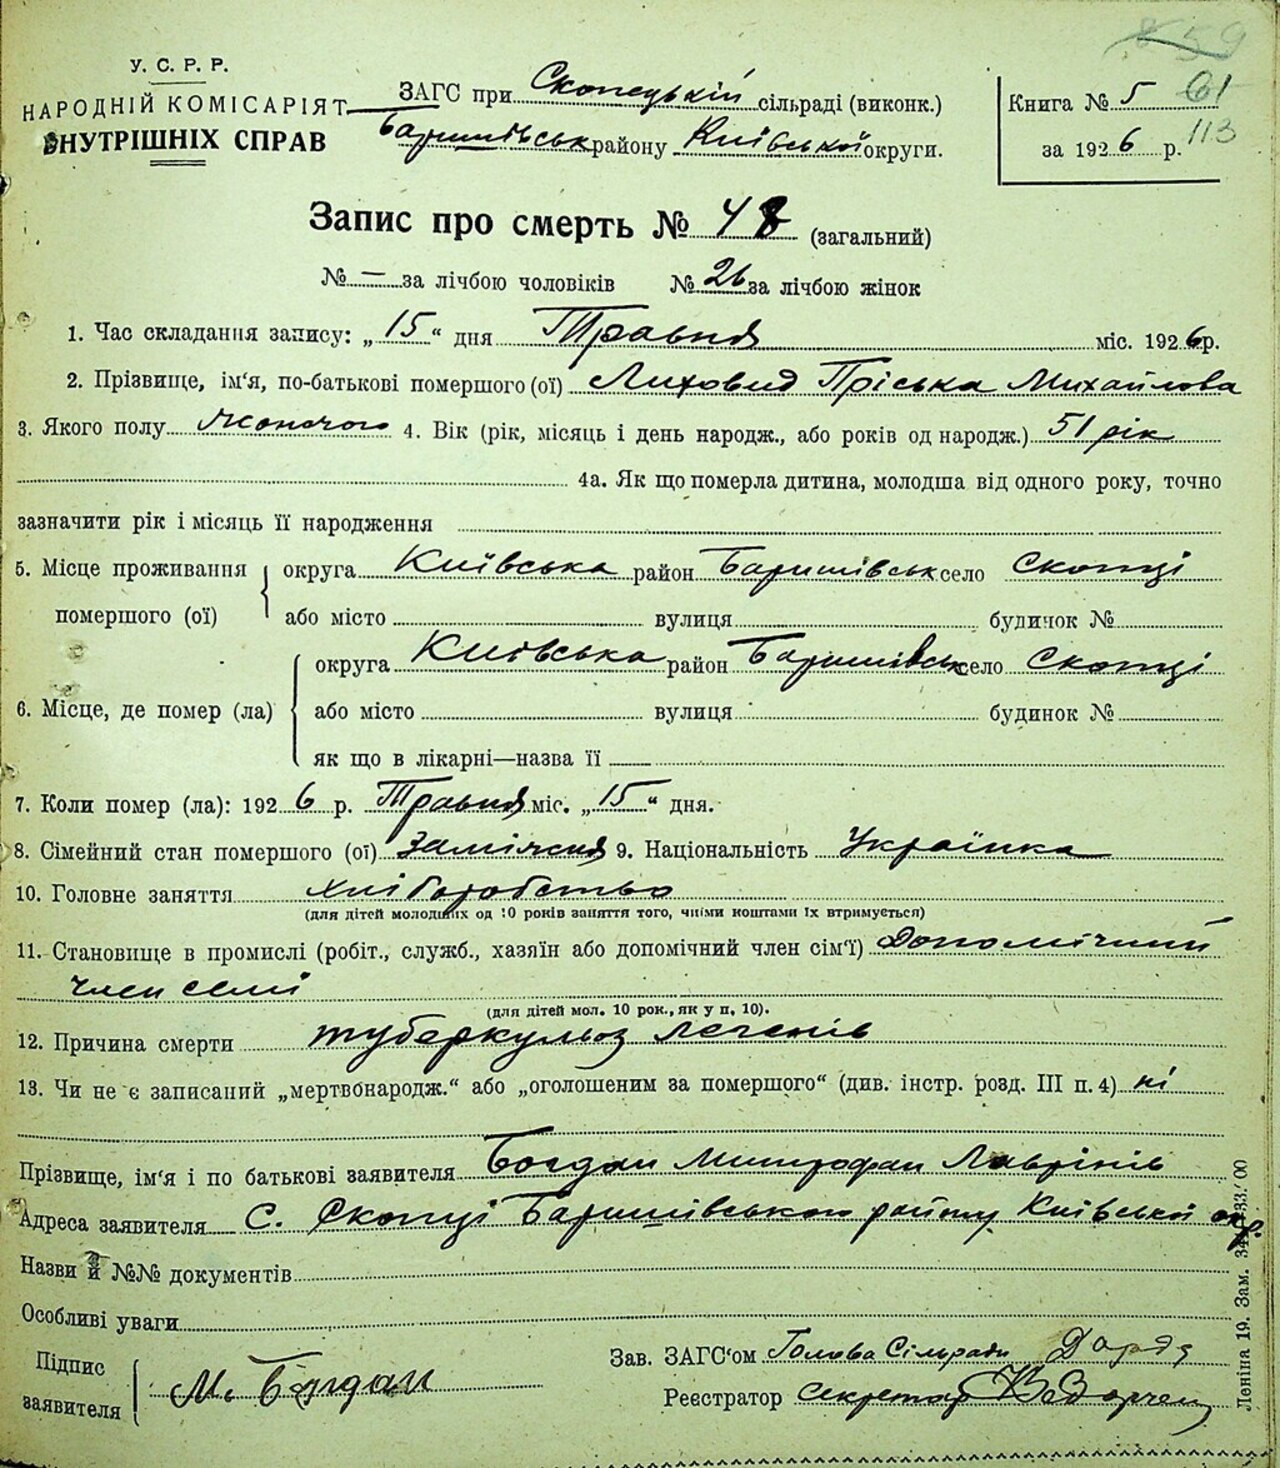 859
У. С. Р. Р.
НАРОДНІЙ КОМІСАРІЯТ
ВНУТРІШНІХ СПРАВ
ЗАГС при Скопецькій сільраді (виконк.)
Баришівськ району Київської округи.
Книга № 5 61
за 1926 р. 113
Запис про смерть № 48 (загальний)
№ — за лічбою чоловіків № 26 за лічбою жінок
1. Час складання запису: „15“ дня Травня міс. 1926 р.
2. Прізвище, ім‘я, по-батькові помершого (ої) Лиховид Пріська Михайлова
3. Якого полу жоночого 4. Вік (рік, місяць і день народж., або років од народж.) 51 рік
4а. Як що померла дитина, молодша від одного року, точно
зазначити рік і місяць її народження
5. Місце проживання помершого (ої) округа Київська район Баришівськ село Скопці
або місто вулиця будинок №
6. Місце, де помер (ла) округа Київська район Баришівськ село Скопці
або місто вулиця будинок №
як що в лікарні—назва її
7. Коли помер (ла): 1926 р. Травня міс. „15“ дня.
8. Сімейний стан помершого (ої) Заміжня 9. Національність Українка
10. Головне заняття хліборобство
(для дітей молодших од 10 років заняття того, чиїми коштами їх втримується)
11. Становище в промислі (робіт., служб., хазяїн або допомічний член сім‘ї) Допомічний
член семї
(для дітей мол. 10 рок., як у п. 10).
12. Причина смерти туберкульоз легенів
13. Чи не є записаний „мертвонародж.“ або „оголошеним за помершого“ (див. інстр. розд. III п. 4) ні
Прізвище, ім‘я і по батькові заявителя Богдан Митрофан Лаврінів
Адреса заявителя С. Скопці Баришівського району Київської окр.
Назви й №№ документів
Особливі уваги
Підпис заявителя М. Богдан
Зав. ЗАГС‘ом Голова Сільради
Реєстратор Секретар
Леніна 19. Зам.